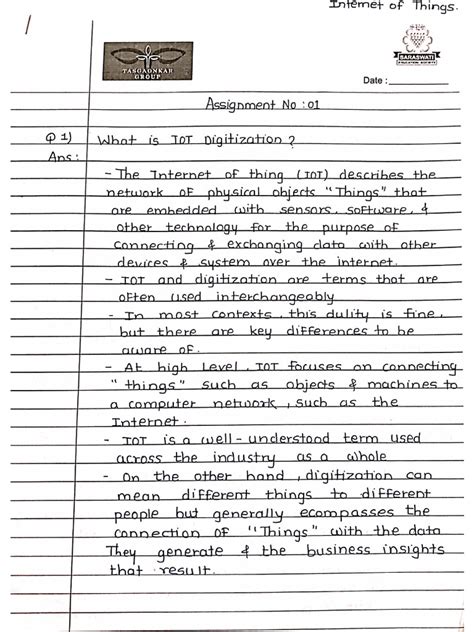 Internet of Things.
TASGAONKAR
GROUP
SARASWATI
EDUCATION SOCIETY
Date :
Assignment No : 01
Q 1) What is IOT Digitization ?
Ans :
- The Internet of thing (IOT) describes the
network of physical objects "Things" that
are embedded with sensors, software, &
other technology for the purpose of
connecting & exchanging data with other
devices & system over the internet.
- IOT and digitization are terms that are
often used interchangeably
- In most contexts, this dulity is fine,
but there are key differences to be
aware of.
- At high Level, IOT focuses on connecting
"things" such as objects & machines to
a computer network, such as the
Internet.
- IOT is a well-understood term used
across the industry as a whole
- On the other hand, digitization can
mean different things to different
people but generally ecompasses the
connection of "Things" with the data
They generate & the business insights
that result.